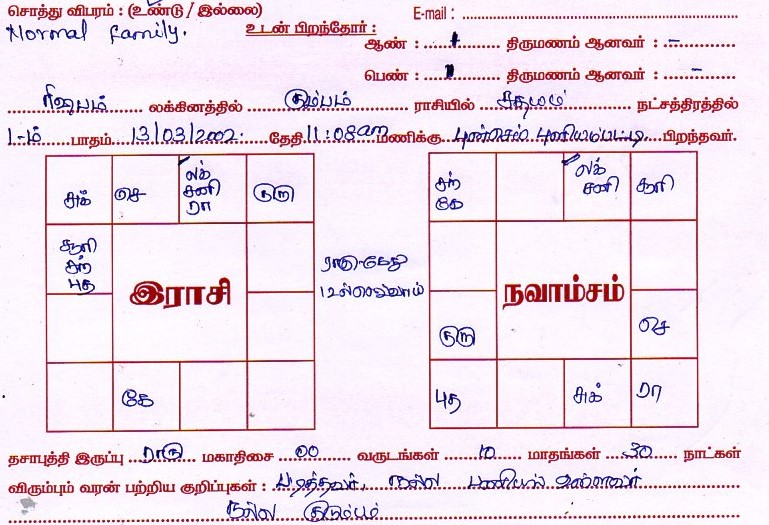 சொத்து விபரம் : (உண்டு / இல்லை) E-mail :
Normal family. உடன் பிறந்தோர் :
ஆண் : 1 திருமணம் ஆனவர் : –
பெண் : 1 திருமணம் ஆனவர் : –
ரிஷபம் லக்கினத்தில் கும்பம் ராசியில் சதயம் நட்சத்திரத்தில்
1-ம் பாதம் 13/03/2002. தேதி 11:08am மணிக்கு புன்செய் புளியம்பட்டி பிறந்தவர்.
சுக் செ லக் சனி ரா குரு
சூரி சந் புத
இராசி
கே
ராகு-கேது
12ல் செவ்வாய்
சந் கே லக் சனி சூரி
நவாம்சம்
குரு செ
புத சுக் ரா
தசாபுத்தி இருப்பு ராகு மகாதிசை 00 வருடங்கள் 10 மாதங்கள் 30 நாட்கள்
விரும்பும் வரன் பற்றிய குறிப்புகள் : படித்தவர், நல்ல பணியில் உள்ளவர்
நல்ல குடும்பம்